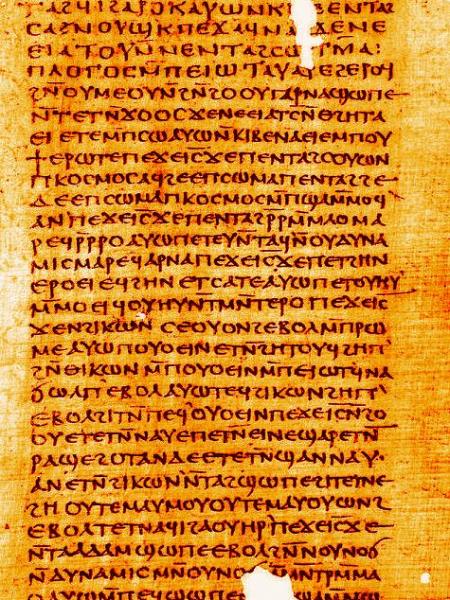 ⲧⲁϩϥⲓ ϩⲁⲣⲟⲕ ⲁⲩⲱ ⲛ̄ⲕⲓ ⲉⲛⲧⲁϩ
ⲥⲁⲛⲟⲩϣⲕ ⲡⲉϫⲁϥ ⲛⲁ ϫⲉ ⲛⲉ
ⲉⲓⲁⲧⲟⲩ ⲛ̄ⲛⲉⲛⲧⲁϩⲥⲱⲧⲙ̄ ⲁ
ⲡⲗⲟⲅⲟⲥ ⲙ̄ⲡⲉⲓⲱⲧ ⲁⲩⲁⲣⲉϩ ⲉⲣⲟϥ
ϩⲛ̄ ⲟⲩⲙⲉ ⲟⲩⲛ̄ ϩⲛ̄ϩⲟⲟⲩ ⲅⲁⲣ ⲛⲁϣⲱⲡⲉ
ⲛ̄ⲧⲉⲧⲛ̄ϫⲟⲟⲥ ϫⲉ ⲛⲉⲉⲓⲁⲧⲥ̄ ⲛ̄ⲑⲏ ⲧⲁ
ⲉⲓ ⲉⲧⲉ ⲙ̄ⲡⲥⲱ ⲁⲩⲱ ⲛ̄ⲕⲓⲃⲉ ⲛⲁⲉⲓ ⲉⲙⲡⲟⲩ
ϯ ⲉⲣⲱⲧⲉ ⲡⲉϫⲉ ⲓ̄ⲥ̄ ϫⲉ ⲡⲉⲛⲧⲁϩⲥⲟⲩⲱⲛ
ⲡⲕⲟⲥⲙⲟⲥ ⲁϥϩⲉ ⲉⲡⲥⲱⲙⲁ ⲡⲉⲛⲧⲁϩϩⲉ
ⲇⲉ ⲉⲡⲥⲱⲙⲁ ⲡⲕⲟⲥⲙⲟⲥ ⲙ̄ⲡϣⲁ ⲙ̄ⲙⲟϥ
ⲁⲛ ⲡⲉϫⲉ ⲓ̄ⲥ̄ ϫⲉ ⲡⲉⲛⲧⲁϩⲣ̄ ⲣⲙ̄ⲙⲁⲟ ⲙⲁ
ⲣⲉϥⲣ̄ ⲣ̄ⲣⲟ ⲁⲩⲱ ⲡⲉⲧⲉⲩⲛ̄ⲧⲁϥ ⲛ̄ⲟⲩⲇⲩⲛⲁ
ⲙⲓⲥ ⲙⲁⲣⲉϥⲁⲣⲛⲁ ⲡⲉϫⲉ ⲓ̄ⲥ̄ ϫⲉ ⲡⲉⲧϩⲏⲛ
ⲉⲣⲟⲉⲓ ⲉϥϩⲏⲛ ⲉⲧⲥⲁⲧⲉ ⲁⲩⲱ ⲡⲉⲧⲟⲩⲏⲩ
ⲙ̄ⲙⲟⲉⲓ ϥⲟⲩⲏⲩ ⲛ̄ⲧⲙⲛ̄ⲧⲉⲣⲟ ⲡⲉϫⲉ ⲓ̄ⲥ̄
ϫⲉ ⲛϩⲓⲕⲱⲛ ⲥⲉⲟⲩⲟⲛϩ ⲉⲃⲟⲗ ⲙ̄ⲡⲣⲱ
ⲙⲉ ⲁⲩⲱ ⲡⲟⲩⲟⲉⲓⲛ ⲉⲧⲛ̄ϩⲏⲧⲟⲩ ϥϩⲏⲡ
ϩⲛ̄ ⲑⲓⲕⲱⲛ ⲙ̄ⲡⲟⲩⲟⲉⲓⲛ ⲙ̄ⲡⲉⲓⲱⲧ ϥⲛⲁ
ϭⲱⲗⲡ ⲉⲃⲟⲗ ⲁⲩⲱ ⲧⲉϥϩⲓⲕⲱⲛ ϩⲏⲡ
ⲉⲃⲟⲗ ϩⲓⲧⲛ̄ ⲡⲉϥⲟⲩⲟⲉⲓⲛ ⲡⲉϫⲉ ⲓ̄ⲥ̄ ⲛ̄ϩⲟ
ⲟⲩ ⲉⲧⲉⲧⲛ̄ⲛⲁⲩ ⲉⲡⲉⲧⲛ̄ⲉⲓⲛⲉ ϣⲁⲣⲉⲧⲛ̄
ⲣⲁϣⲉ ϩⲟⲧⲁⲛ ⲇⲉ ⲉⲧⲉⲧⲛ̄ϣⲁⲛⲛⲁⲩ
ⲁⲛⲉⲧⲛ̄ϩⲓⲕⲱⲛ ⲛ̄ⲧⲁϩϣⲱⲡⲉ ϩⲓ ⲧⲉⲧⲛⲉ
ϩⲏ ⲟⲩⲧⲉ ⲙⲁⲩⲙⲟⲩ ⲟⲩⲧⲉ ⲙⲁⲩⲟⲩⲱⲛϩ
ⲉⲃⲟⲗ ⲧⲉⲧⲛⲁϥⲓ ϩⲁ ⲟⲩⲏⲣ ⲡⲉϫⲉ ⲓ̄ⲥ̄ ϫⲉ
ⲛ̄ⲧⲁ ⲁⲇⲁⲙ ϣⲱⲡⲉ ⲉⲃⲟⲗ ϩⲛⲛ̄ ⲟⲩⲛⲟϭ
ⲛ̄ⲇⲩⲛⲁⲙⲓⲥ ⲙⲛ̄ ⲟⲩⲛⲟϭ ⲙ̄ⲙⲛ̄ⲧⲣⲙ̄ⲙⲁ